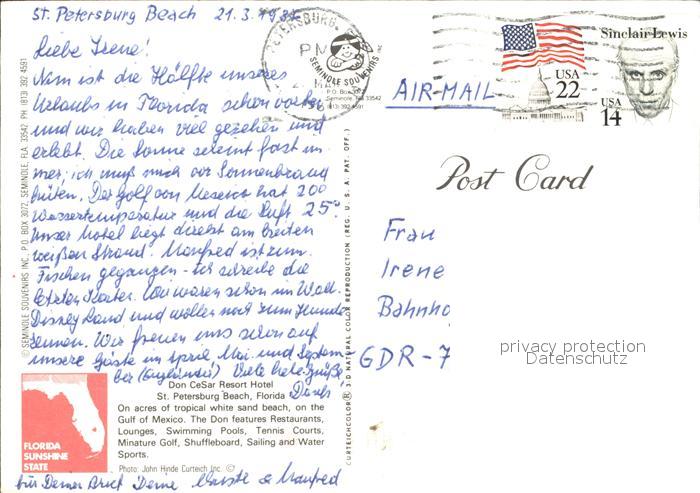 St. Petersburg Beach 21.3.19
Liebe Irene!
Nun ist die Hälfte unseres
Urlaubs in Florida schon vorbei
und wir haben viel gesehen und
erlebt. Die Sonne scheint fast im-
mer, ich muß mich vor Sonnenbrand
hüten. Der Golf von Mexico hat 20°
Wassertemperatur und die Luft 25°.
Unser Hotel liegt direkt am breiten
weißen Strand. Manfred ist zum
Fischen gegangen - ich schreibe die
letzten Karten. Wir waren schon im Walt-
Disney Land und wollen noch zum
Wir freuen uns schon auf
unsere Gäste im April, Mai und Septem-
ber (Engländer) Viele liebe Grüße,
Dank
für Deinen Brief Deine & Manfred
© SEMINOLE SOUVENIRS INC. P.O. BOX 3072, SEMINOLE, FLA. PH. (813) 392 4591
CURTEICHCOLOR® 3-D NATURAL COLOR REPRODUCTION (REG. U.S.A. PAT. OFF.)
PETERSBURG,
PM
SEMINOLE SOUVENIRS
P.O. Box 3072
Seminole, Fla. 33542
(813) 392-4591
AIR-MAIL
USA
22
Sinclair Lewis
USA
14
Post Card
Frau
Irene
Bahnho
GDR-7
privacy protection
Datenschutz
FLORIDA
SUNSHINE
STATE
Don CeSar Resort Hotel
St. Petersburg Beach, Florida
On acres of tropical white sand beach, on the
Gulf of Mexico. The Don features Restaurants,
Lounges, Swimming Pools, Tennis Courts,
Minature Golf, Shuffleboard, Sailing and Water
Sports.
Photo: John Hinde Curteich Inc. ©